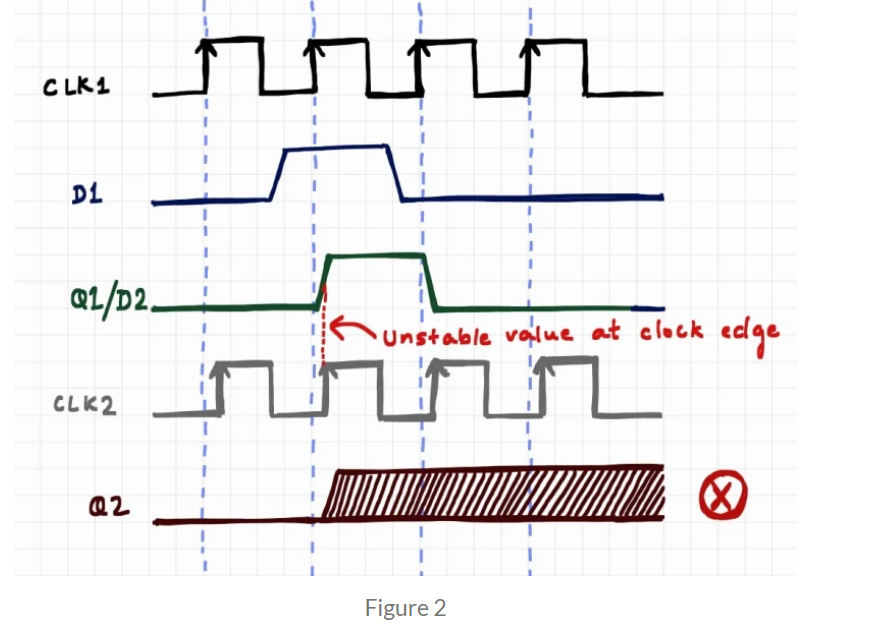 CLK1
D1
Q1/D2
Unstable value at clock edge
CLK2
Q2
X
Figure 2